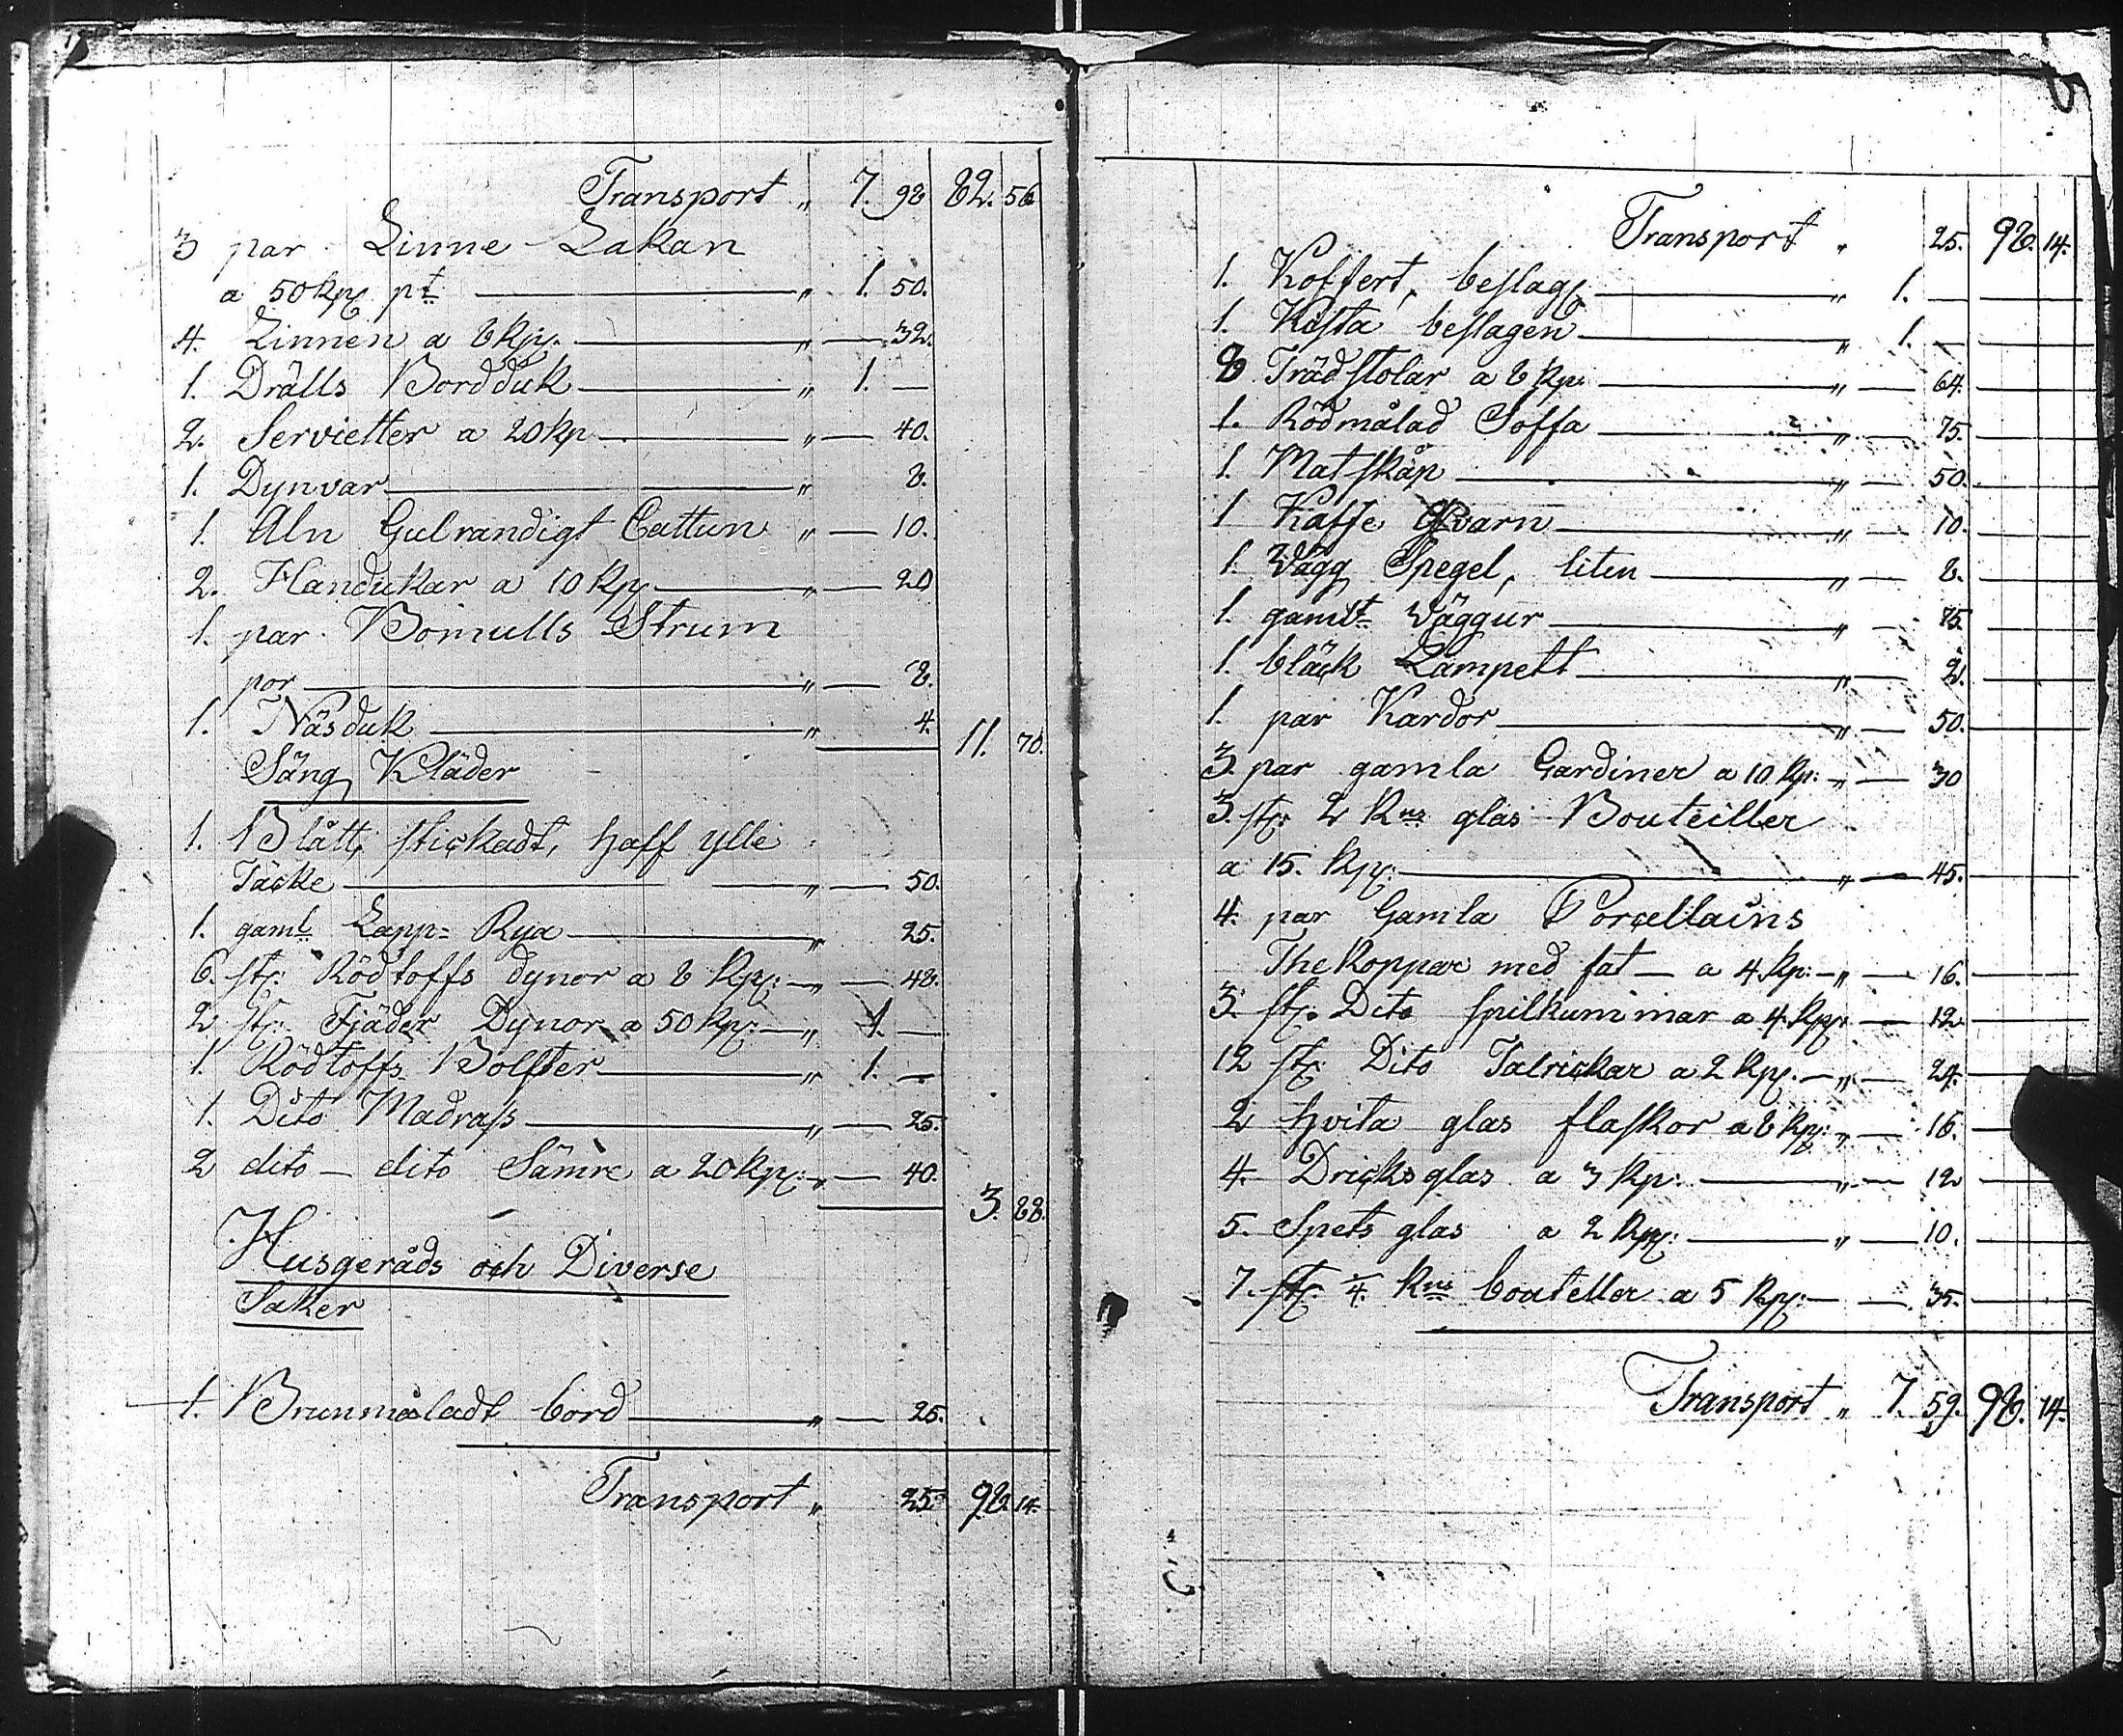 Transport „ 7. 98 82. 56
3 par Linne Lakan
a 50 Kpp pt „ 1. 50.
4. Linnen a 8 Kpp. „ — 32.
1. Drälls Bordduk „ 1. —
2. Servietter a 20 Kp „ — 40.
1. Dynvar „ 8.
1. Aln Gulrandigt Cattun „ — 10.
2. Handukar a 10 Kpp „ — 20
1. par Bomulls Strum
por „ — 8.
1. Näsduk „ 4. 11. 70.
Säng Kläder
1. Blått, stickadt, half ylle
Täcke „ — 50.
1. gaml Lapp= Rya „ 25.
6. st: Rödtoffs dynor a 8 Kpp: „ — 48.
2 st: Fjäder Dynor a 50 Kpp: „ 1. —
1. Rödtoffs Bolster „ 1. —
1. Dito Madrass „ — 25.
2 dito — dito Sämre a 20 Kpp: „ — 40.
3. 88.
Husgeråds och Diverse
Saker
1. Brunmåladt bord „ — 25.
Transport „ 25. 98. 14.
5
Transport „ 25. 98. 14.
1. Koffert, beslag „ 1. —
1. Kista beslagen „ 1. —
8 Trädstolar a 8 Kp: „ — 64.
1. Rödmålad Soffa „ — 75.
1. Matskåp „ — 50.
1 Kaffe Qvarn „ — 10.
1. Vägg Spegel, liten „ — 8.
1. gamlt Väggur „ — 75.
1. bläck Lampett „ — 2.
1. par Kardor „ — 50.
3. par gamla Gardiner a 10 Kp: „ — 30
3. st: 2 Kns glas Bouteiller
a 15. Kpp: „ — 45.
4. par Gamla Porcellains
The Koppar med fat — a 4 Kp: „ — 16.
3. st: Dito spilkummar a 4 Kpp: — 12
12 st: Dito Talrickar a 2 Kpp. „ — 24.
2 hvita glas flaskor a 8 Kpp: „ — 16.
4. Dricksglas a 3 Kp: „ — 12
5. Spets glas a 2 Kpp: „ — 10.
7. st: Kns bouteller a 5 Kpp: — 35.
Transport „ 7. 59. 98. 14.